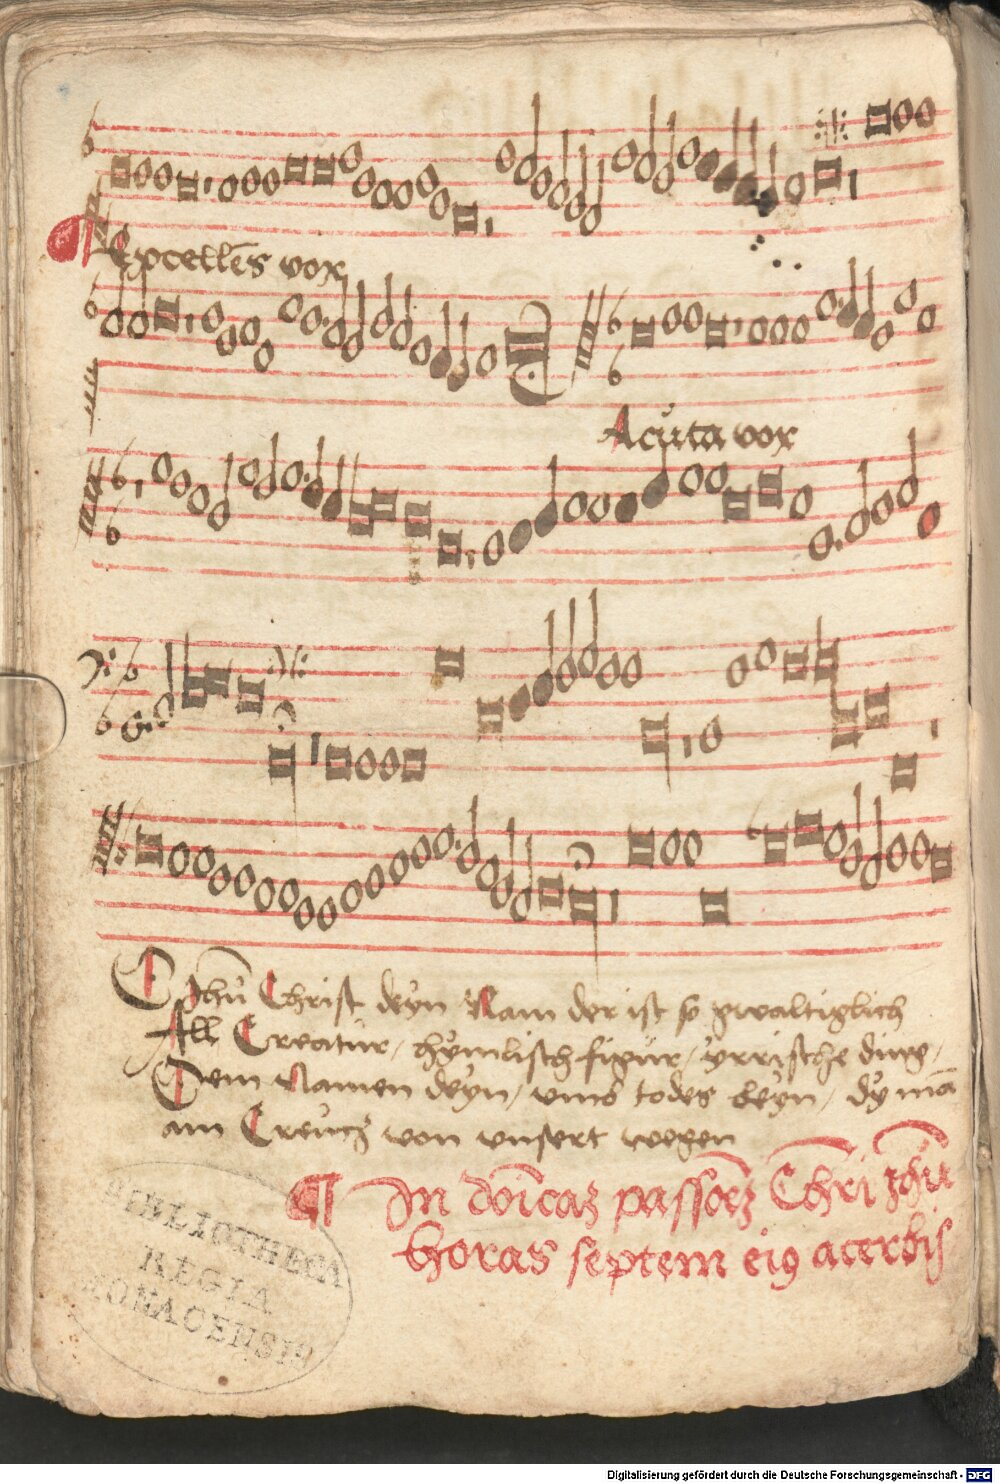 Excellēs vox
Acuta vox
O Jhū Christ deyn Nam der ist so gwaltiglich
All Creatur / hymlisch figur / yrrische ding /
Dem Namen deyn / vmb todes
am Creutz von vnsert wegen
¶ In doīcaz passioēz Chri Jhū
horas septem eiꝰ acerbis
BIBLIOTHECA
REGIA
MONACENSIS
Digitalisierung gefördert durch die Deutsche Forschungsgemeinschaft - DFG